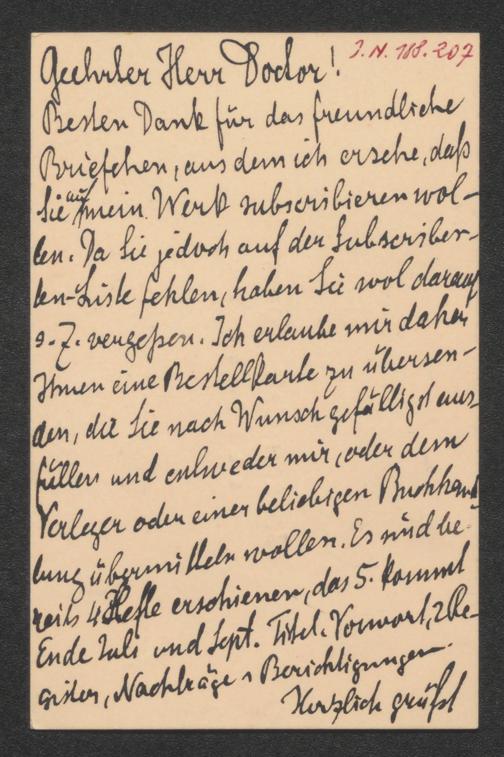 Geehrter Herr Doctor! I. N. 188.207
Besten Dank für das freundliche
Briefchen, aus dem ich ersehe, daß
Sie auf mein Werk subscribieren wol-
len. Da Sie jedoch auf der Subscriben-
ten-Liste fehlen, haben Sie wol darauf
s. Z. vergeßen. Ich erlaube mir daher
Ihnen eine Bestellkarte zu übersen-
den, die Sie nach Wunsch gefälligst aus-
füllen und entweder mir, oder dem
Verleger oder einer beliebigen Buchhand-
lung übermitteln wollen. Es sind be-
reits 4 Hefte erschienen, das 5. kommt
Ende Juli und Sept. Titel, Vorwort, 2 Re-
gister, Nachträge u Berichtigungen.
Herzlich grüßt